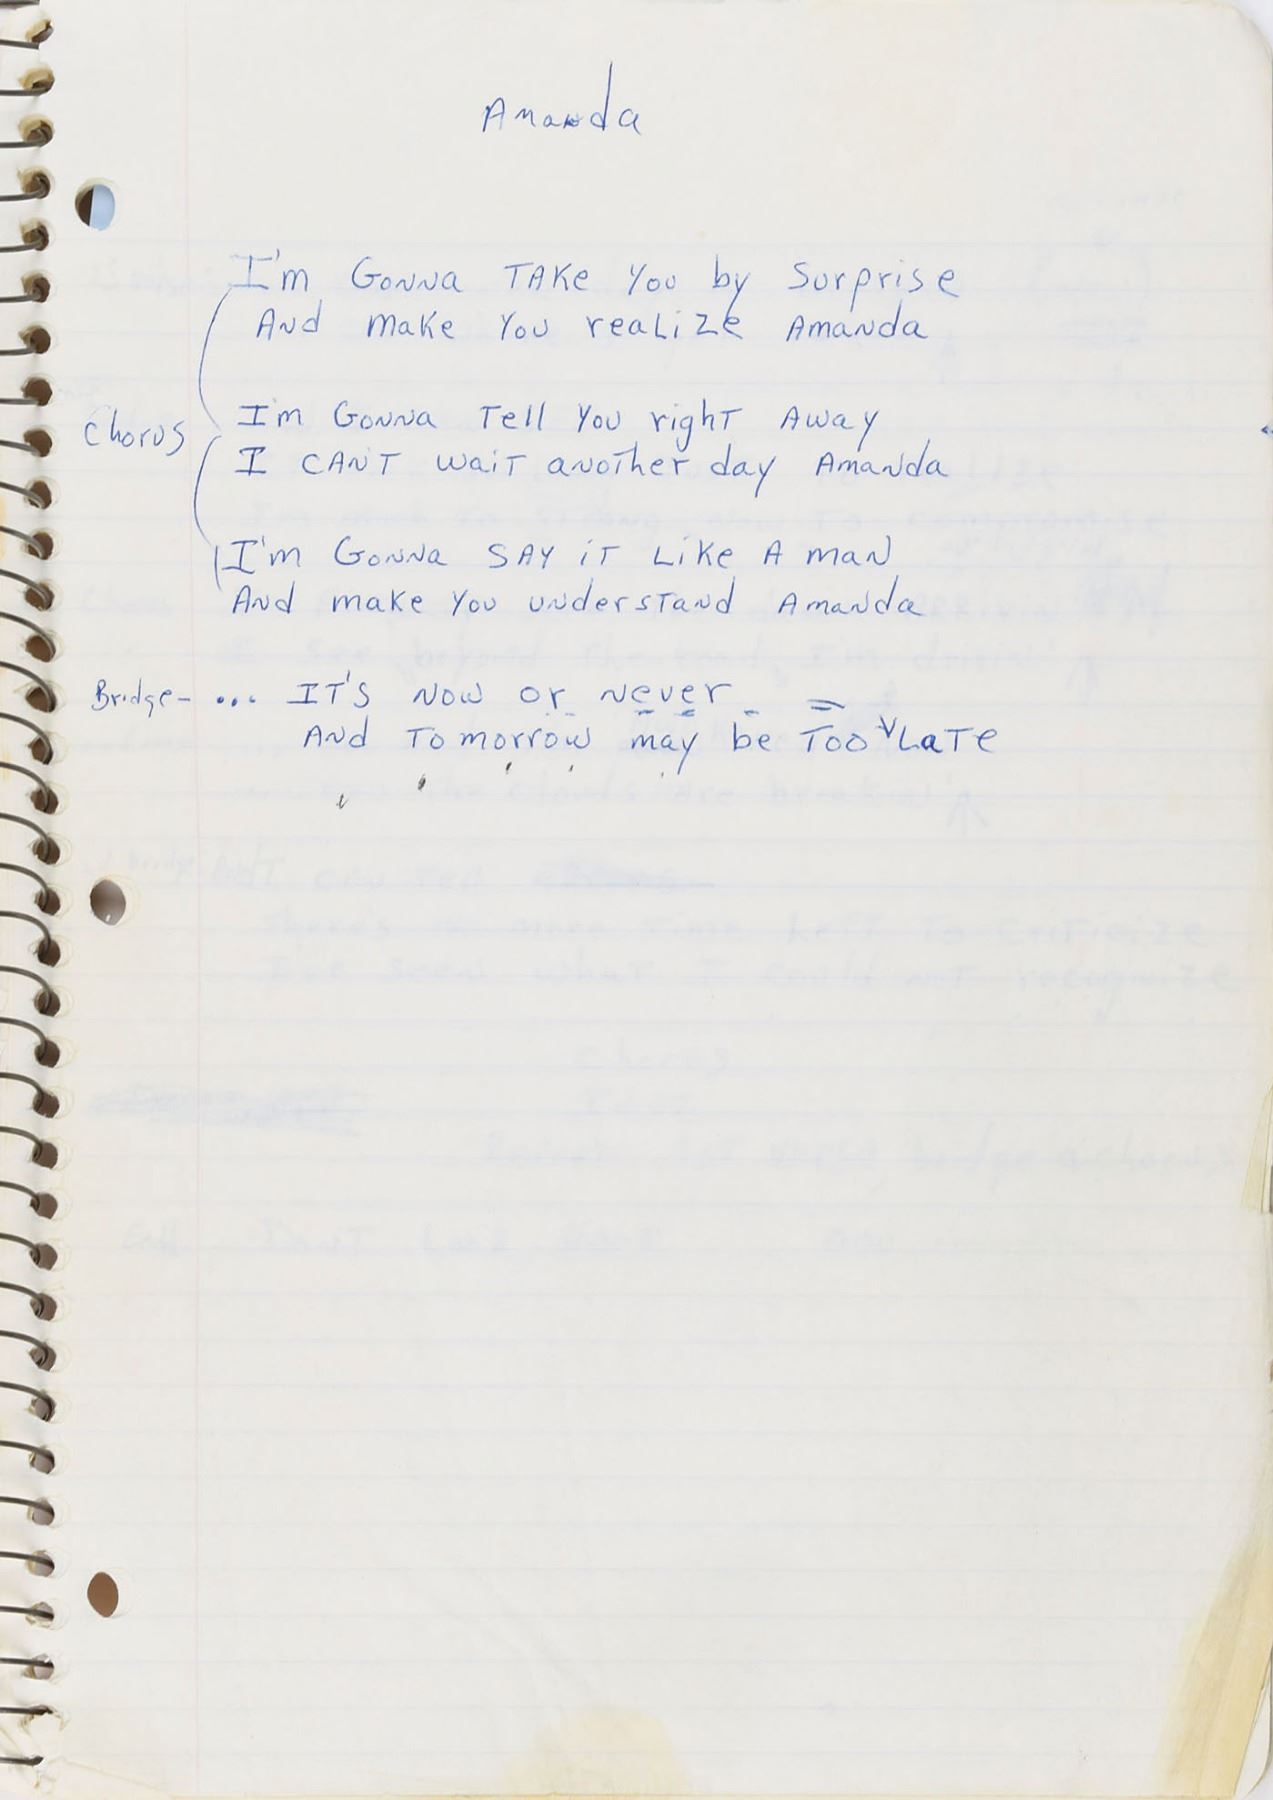 Amanda
I'm Gonna TAKe You by Surprise
And make You realize Amanda
Chorus
I'm Gonna Tell You right Away
I CAN'T wait another day Amanda
I'm Gonna SAY iT Like A man
And make You understand Amanda
Bridge- ... IT'S Now or Never
And Tomorrow may be Too Late